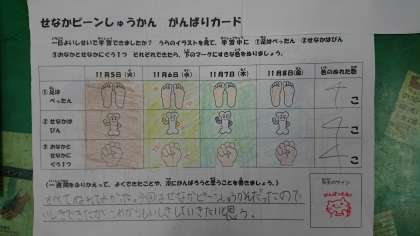 せなかピーンしゅうかん がんばりカード
一日よいしせいで学習できましたか？ うらのイラストを見て、学習中に ①足はぺったん ②せなかはぴん
③おなかとせなかにぐう1つ それぞれできたら、下のマークにすきな色をぬりましょう。
11月5日(火) 11月6日(水) 11月7日(木) 11月8日(金) 色のぬれた数
①足は
ぺったん
こ
②せなかは
ぴん
4 こ
③おなかと
せなかに
ぐう1つ
4 こ
(一週間をふりかえって、よくできたことや、次にがんばろうと思うことを書きましょう。)
すべてぬれてよかった。今回はせなかピーンしゅうかんだったので
いしきできたが、これからもいしきしていきたいと思う。
先生のサイン